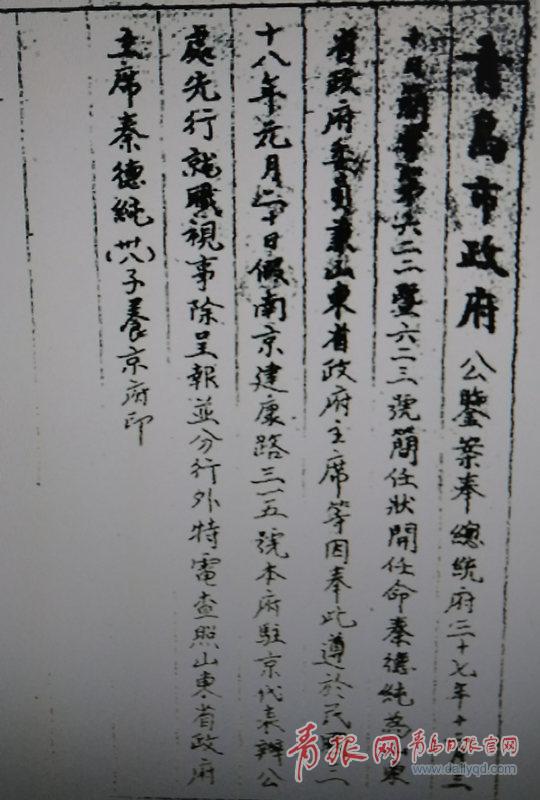 青島市政府公鑒案奉總統府三十七年十二月三
十日簡字第六二二暨六二三號簡任狀開任命秦德純為山東
省政府委員兼山東省政府主席等因奉此遵於民國三
十八年元月二十日假南京建康路三一五號本府駐京代表辦公
處先行就職視事除呈報並分行外特電查照山東省政府
主席秦德純(卅八)子養京府印
青报网
青岛日报官网
www.dailyqd.com